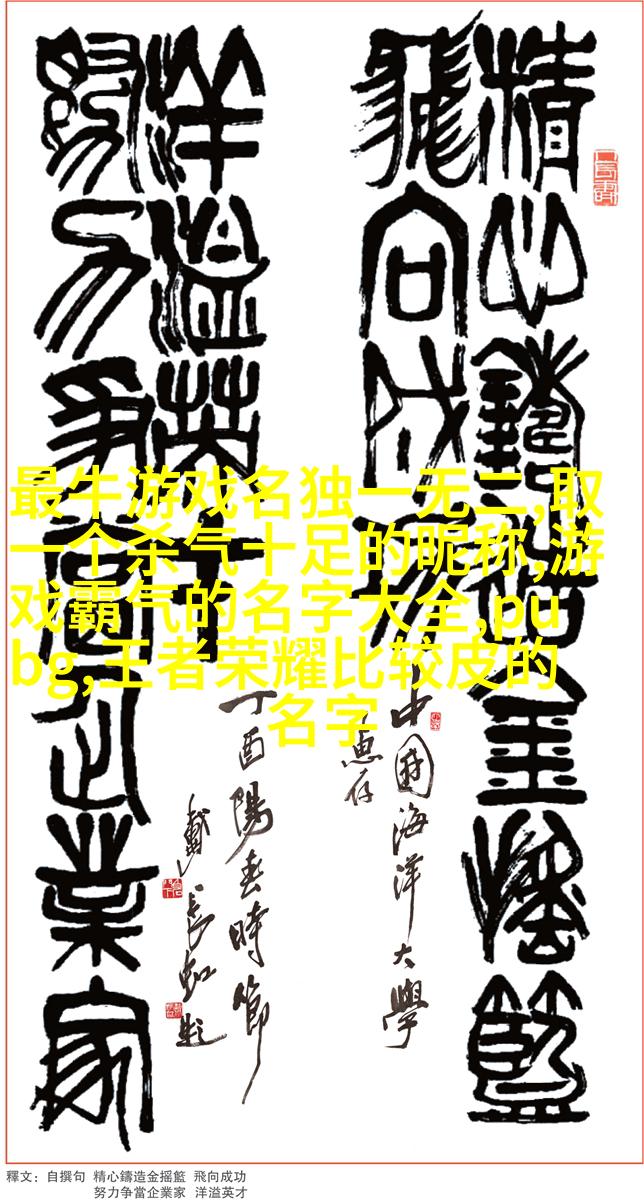 精心鑄造金摇籃
飛向成功
中國海洋大學
惠存
洋溢英才
努力争當企業家
丁酉陽春時節
戴長虹題
最牛游戏名独一无二,取
一个杀气十足的昵称,游
戏霸气的名字大全,pu
bg,王者荣耀比较皮的
名字
釋文：自撰句 精心鑄造金摇籃 飛向成功
努力争當企業家 洋溢英才